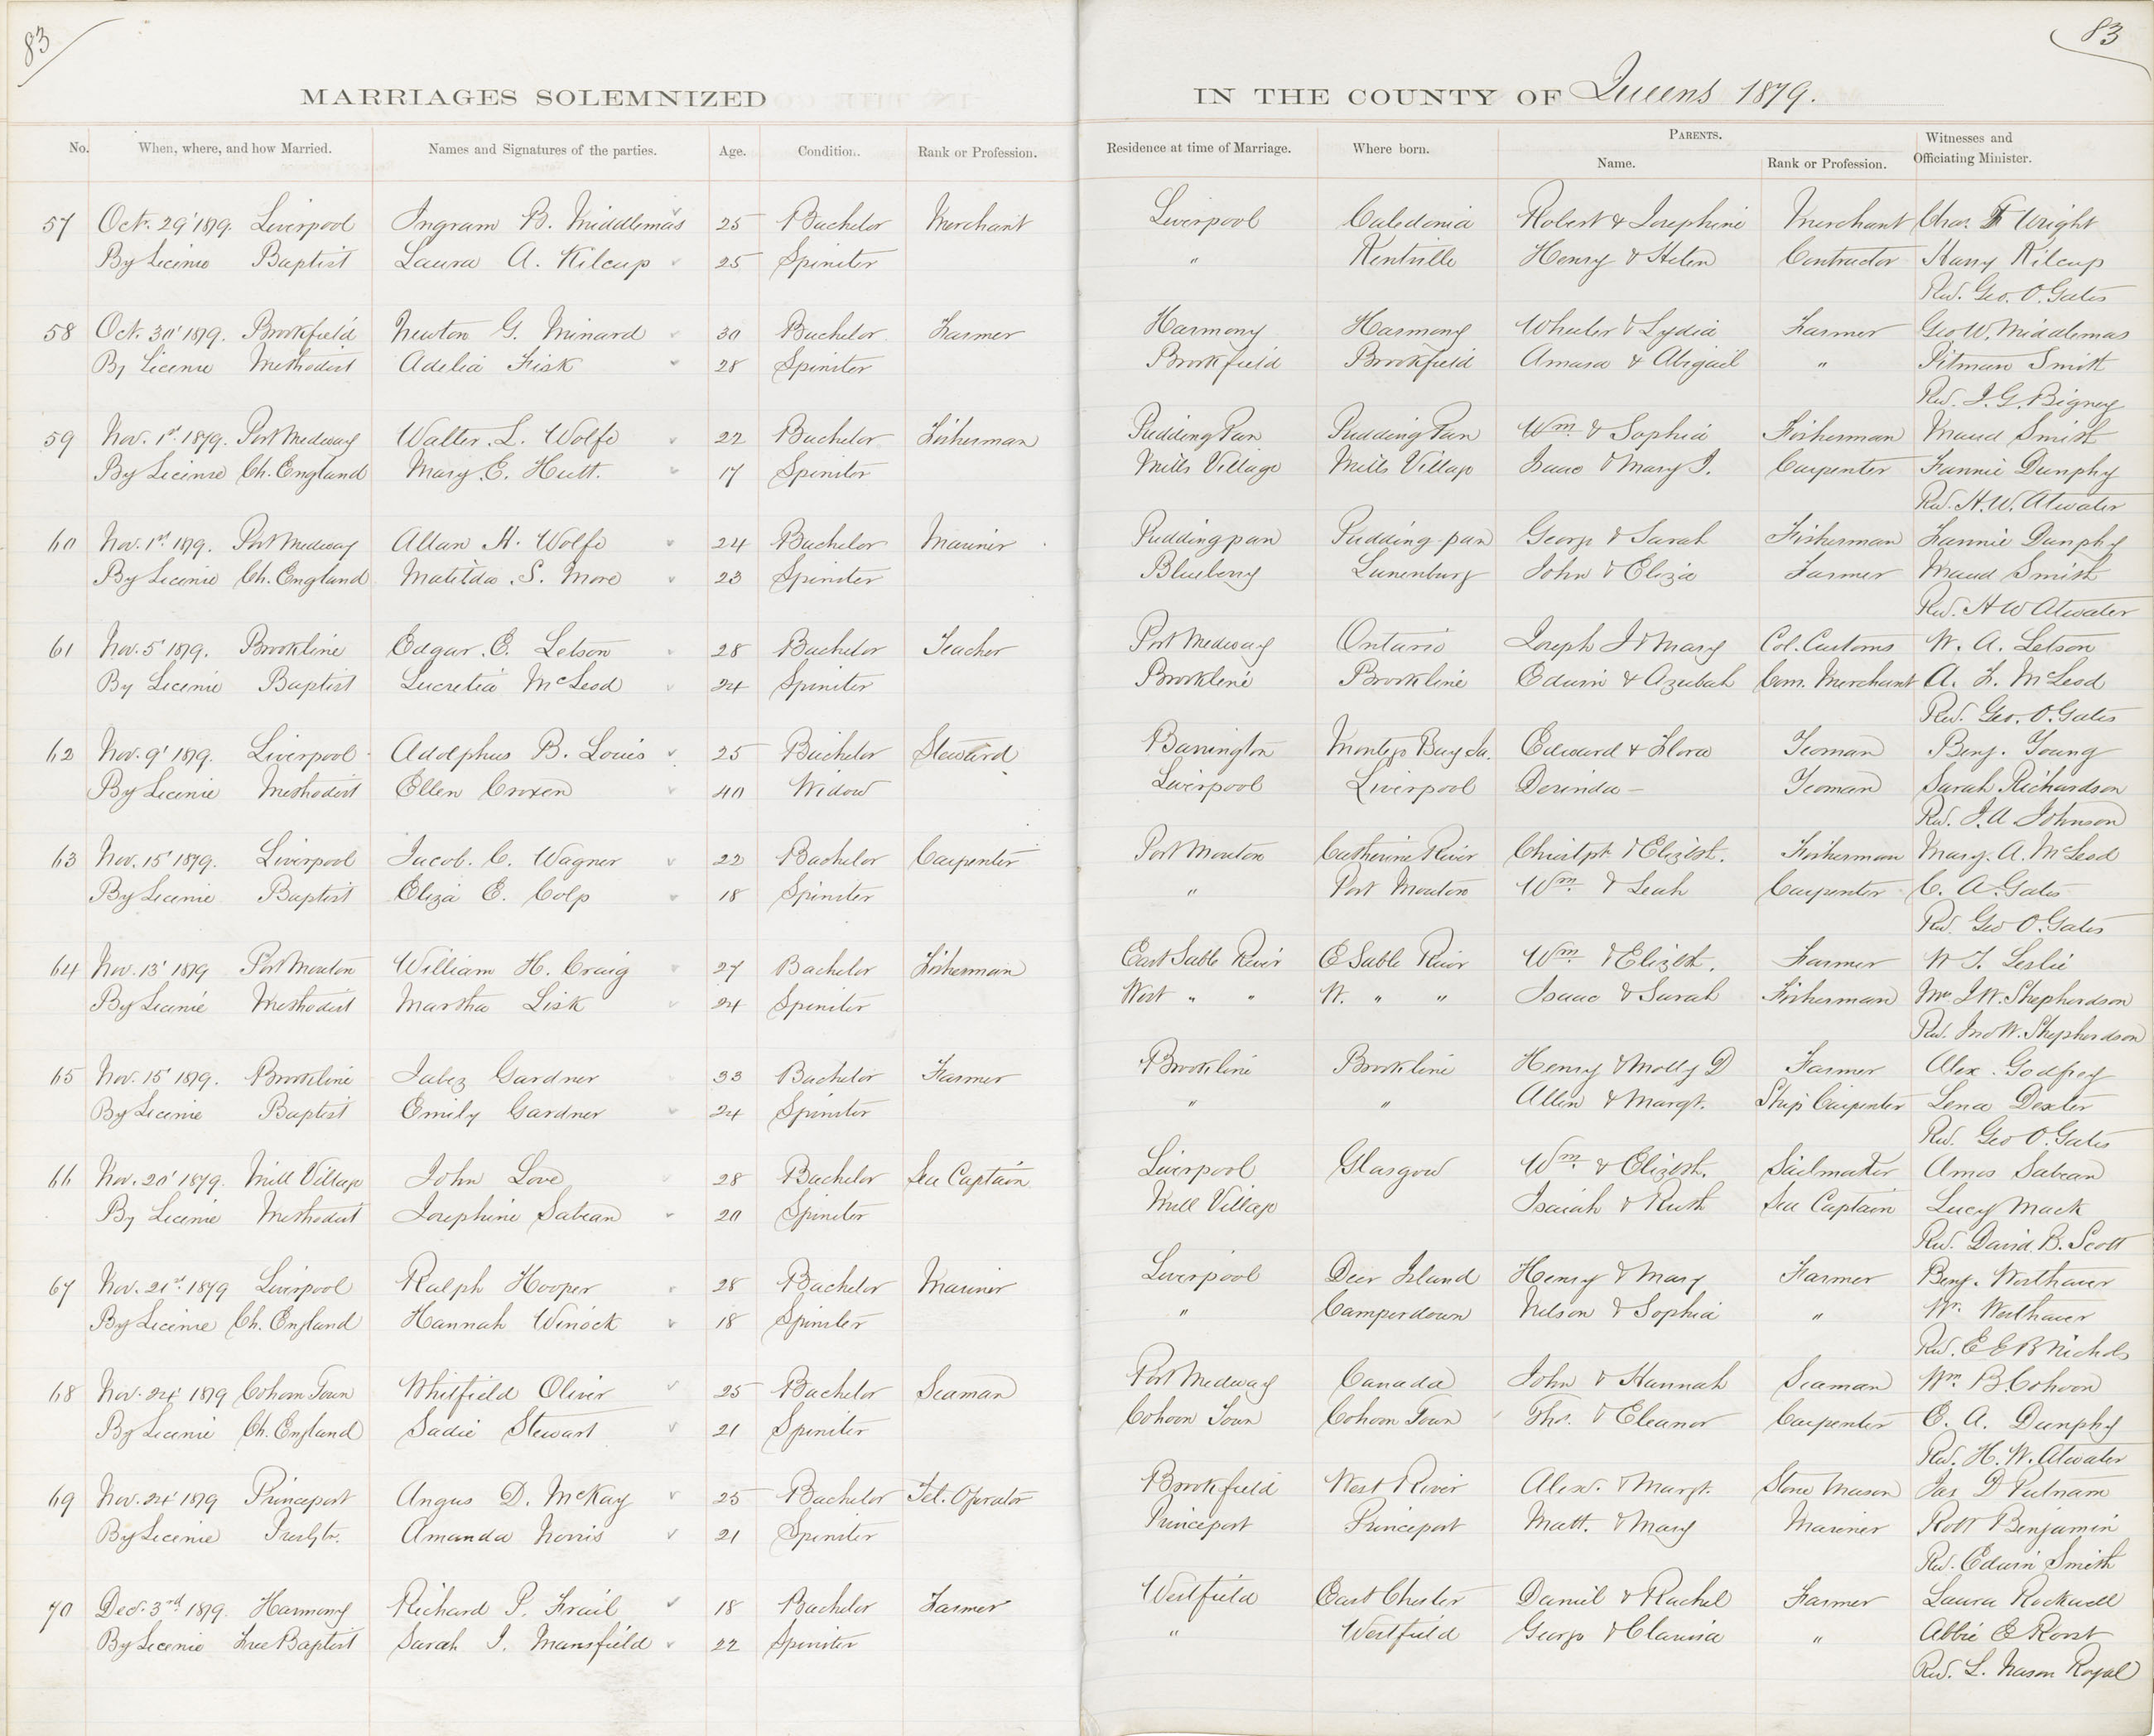 83
83
MARRIAGES SOLEMNIZED IN THE COUNTY OF Queens 1879.
No. When, where, and how Married. Names and Signatures of the parties. Age. Condition. Rank or Profession. Residence at time of Marriage. Where born. PARENTS. Name. Rank or Profession. Witnesses and Officiating Minister.
57 Oct. 29' 1879. Liverpool Ingram B. Middlemas 25 Bachelor Merchant Liverpool Caledonia Robert & Josephine Merchant Chas. F Wright
By Licence Baptist Laura A. Kilcup 25 Spinster " Kentville Henry & Helen Contractor Harry Kilcup
Rev. Geo. O. Gates
58 Oct. 30' 1879. Brookfield Newton G. Minard 30 Bachelor Farmer Harmony Harmony Wheeler & Lydia Farmer Geo W. Middlemas
By Licence Methodist Adelia Fisk 28 Spinster Brookfield Brookfield Amasa & Abigail " Pitman Smith
Rev. J. G. Bigney
59 Nov. 1st 1879. Port Medway Walter L. Wolfe 22 Bachelor Fisherman Pudding Pan Pudding Pan Wm. & Sophia Fisherman Maud Smith
By Licence Ch. England Mary E. Hutt. 17 Spinster Mills Village Mills Village Isaac & Mary J. Carpenter Fannie Dunphy
Rev. H. W. Atwater
60 Nov. 1st 1879. Port Medway Allan H. Wolfe 24 Bachelor Mariner Puddingpan Pudding-pan George & Sarah Fisherman Fannie Dunphy
By Licence Ch. England Matilda S. More 23 Spinster Blueberry Lunenburg John & Eliza Farmer Maud Smith
Rev. H W Atwater
61 Nov. 5' 1879. Brookline Edgar E. Letson 28 Bachelor Teacher Port Medway Ontario Joseph J & Mary Col. Customs W. A. Letson
By Licence Baptist Lucretia McLeod 24 Spinster Brookline Brookline Edwin & Azubah Com. Merchant A. F. McLeod
Rev. Geo. O. Gates
62 Nov. 9' 1879. Liverpool Adolphus B. Louis 25 Bachelor Steward Barrington Montego Bay Ja. Edward & Flora Yeoman Benj. Young
By Licence Methodist Ellen Croxen 40 Widow Liverpool Liverpool Dorinda – Yeoman Sarah Richardson
Rev. J. A Johnson
63 Nov. 15' 1879. Liverpool Jacob. C. Wagner 22 Bachelor Carpenter Port Mouton Catherine River Christph & Elizbt. Fisherman Mary. A. McLeod
By Licence Baptist Eliza E. Colp 18 Spinster " Port Mouton Wm. & Leah Carpenter C. A. Gates
Rev. Geo O. Gates
64 Nov. 13' 1879 Port Mouton William H. Craig 27 Bachelor Fisherman East Sable River E Sable River Wm & Elizbt. Farmer W T. Leslie
By Licence Methodist Martha Lisk 24 Spinster West " " W. " " Isaac & Sarah Fisherman Mrs J W. Shepherdson
Rev. Jno W. Shepherdson
65 Nov. 15' 1879. Brookline Jabez Gardner 33 Bachelor Farmer Brookline Brookline Henry & Molly D Farmer Alex. Godfrey
By Licence Baptist Emily Gardner 24 Spinster " " Allen & Margt. Ship Carpenter Lena Dexter
Rev. Geo O. Gates
66 Nov. 20' 1879. Mill Village John Love 28 Bachelor Sea Captain Liverpool Glasgow Wm. & Elizbt. Sailmaker Amos Sabean
By Licence Methodist Josephine Sabean 20 Spinster Mill Village Isaiah & Ruth Sea Captain Lucy Mack
Rev. David B. Scott
67 Nov. 21st 1879 Liverpool Ralph Hooper 28 Bachelor Mariner Liverpool Deer Island Henry & Mary Farmer Benj. Worthaver
By Licence Ch. England Hannah Winock 18 Spinster " Camperdown Nelson & Sophia " Wm. Worthaver
Rev. E E B Nichols
68 Nov. 24' 1879 Cohoon Town Whitfield Oliver 25 Bachelor Seaman Port Medway Canada John & Hannah Seaman Wm. B. Cohoon
By Licence Ch. England Sadie Stewart 21 Spinster Cohoon Town Cohoon Town Ths. & Eleanor Carpenter E. A. Dunphy
Rev. H. W. Atwater
69 Nov. 24' 1879 Princeport Angus D. McKay 25 Bachelor Tel. Operator Brookfield West River Alex. & Margt. Stone Mason Jas D Putnam
By Licence Presbytr. Amanda Norris 21 Spinster Princeport Princeport Matt. & Mary Mariner Robt Benjamin
Rev. Edwin Smith
70 Dec. 3rd 1879. Harmony Richard P. Frail 18 Bachelor Farmer Westfield East Chester Daniel & Rachel Farmer Laura Rockwell
By Licence Free Baptist Sarah J. Mansfield 22 Spinster " Westfield George & Clarissa " Abbie E
Rev. L. Nason Royal